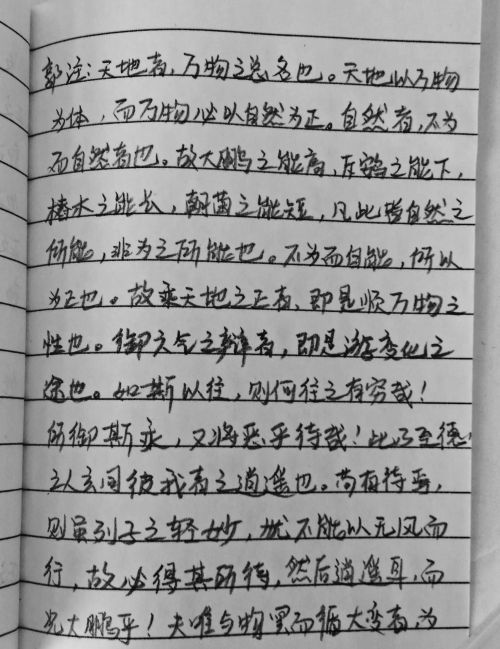 郭注：天地者，万物之总名也。天地以万物
为体，而万物必以自然为正。自然者，不为
而自然者也。故大鹏之能高，斥鴳之能下，
椿木之能长，朝菌之能短，凡此皆自然之
所能，非为之所能也。不为而自能，所以
为正也。故乘天地之正者，即是顺万物之
性也。御六气之辩者，即是游变化之
途也。如斯以往，则何往之有穷哉！
所御斯乘，又将恶乎待哉！此乃至德
之人玄同彼我者之逍遥也。苟有待焉，
则虽列子之轻妙，犹不能以无风而
行，故必得其所待，然后逍遥耳，而
况大鹏乎！夫唯与物冥而循大变者，为